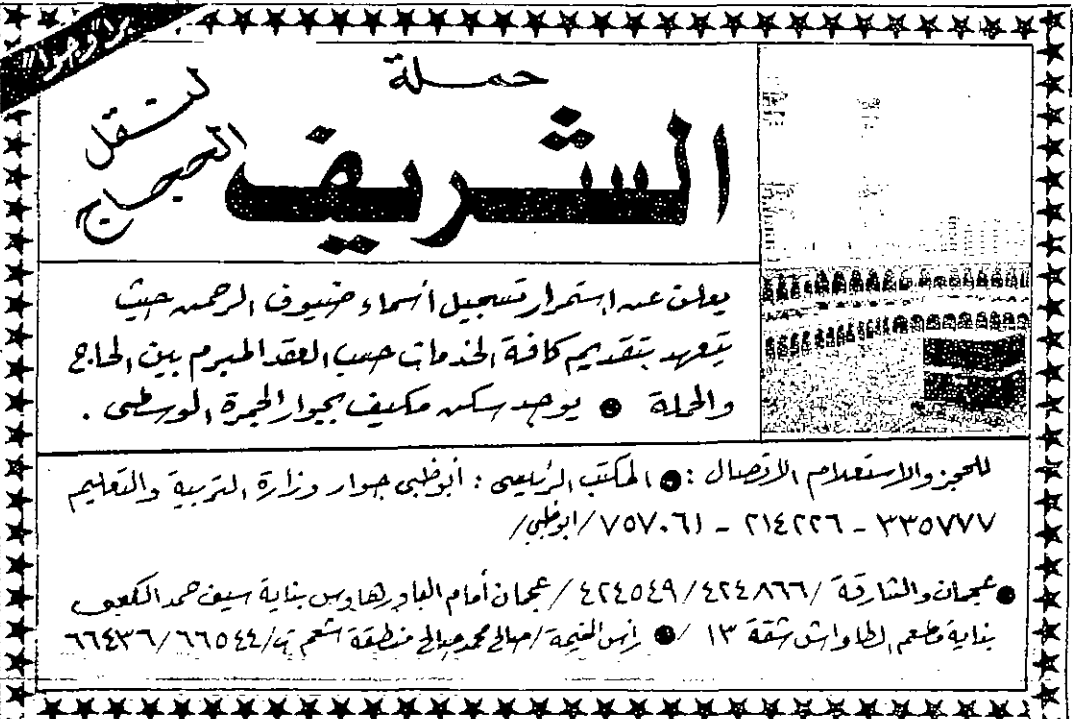 برا وجوا
حملة
الشريف
لنقل
الحجاج
يعلن عن استمرار تسجيل أسماء ضيوف الرحمن حيث
يتعهد بتقديم كافة الخدمات حسب العقد المبرم بين الحاج
والحملة ● يوجد سكن مكيف بجوار الجمرة الوسطى .
للحجز والاستعلام الاتصال : ● المكتب الرئيسي : أبوظبي جوار وزارة التربية والتعليم
٣٣٥٧٧٧ - ٢١٤٢٢٦ - ٧٥٧٠٦١ /ابوظبي/
● عجمان والشارقة / ٤٢٤٨٦٦ / ٤٢٤٥٤٩ / عجمان أمام الباورهاوس بناية سيف حمد الكعبي
بناية مطعم الطاواش شقة ١٣ / ● رأس الخيمة / صالح محمد صالح منطقة شعم ت / ٦٦٥٤٤ / ٦٦٤٣٦